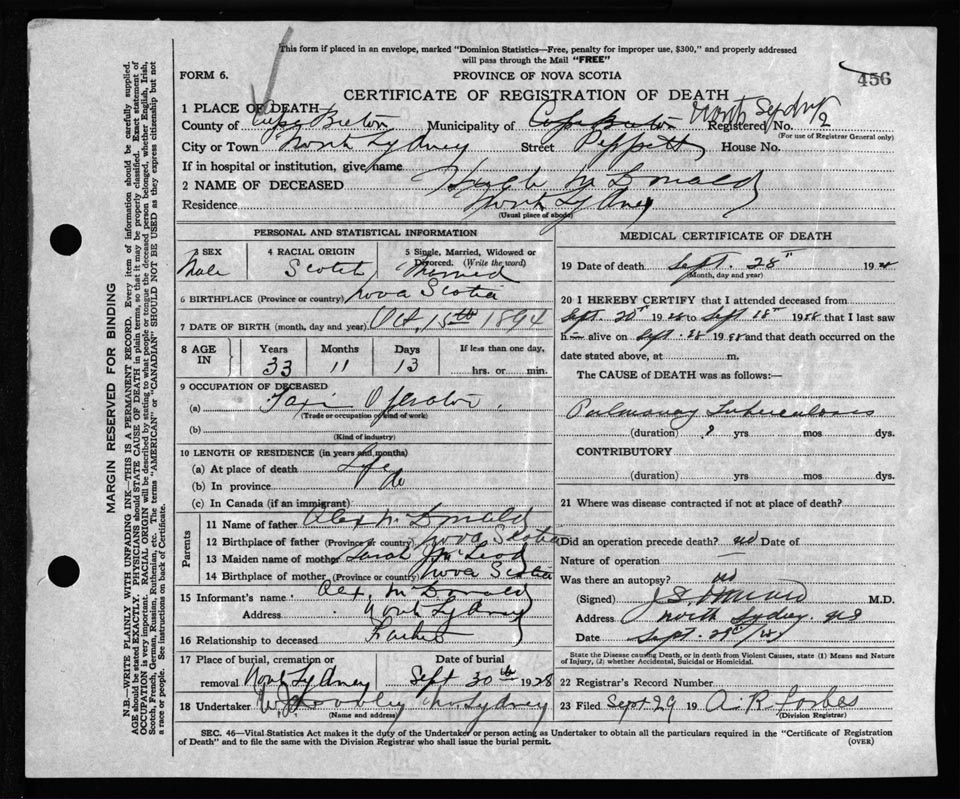 This form if placed in an envelope, marked "Dominion Statistics—Free, penalty for improper use, $300," and properly addressed
will pass through the Mail "FREE"
456
FORM 6.
PROVINCE OF NOVA SCOTIA
CERTIFICATE OF REGISTRATION OF DEATH
North Sydney
1 PLACE OF DEATH
County of Cape Breton Municipality of Cape Breton Registered No. 2
(For use of Registrar General only)
City or Town North Sydney Street Peppett House No.
If in hospital or institution, give name
2 NAME OF DECEASED Hugh McDonald
Residence North Sydney
(Usual place of abode)
PERSONAL AND STATISTICAL INFORMATION
3 SEX Male
4 RACIAL ORIGIN Scotch
5 Single, Married, Widowed or Divorced. (Write the word) Married
6 BIRTHPLACE (Province or country) Nova Scotia
7 DATE OF BIRTH (month, day and year) Oct, 15th 1894
8 AGE IN Years Months Days If less than one day,
33 11 13 hrs. or min.
9 OCCUPATION OF DECEASED
(a) Taxi Operator.
(Trade or occupation or kind of work)
(b)
(Kind of industry)
10 LENGTH OF RESIDENCE (in years and months)
(a) At place of death Life
(b) In province do
(c) In Canada (if an immigrant)
Parents
11 Name of father Alex McDonald
12 Birthplace of father (Province or country) Nova Scotia
13 Maiden name of mother Sarah McLeod
14 Birthplace of mother (Province or country) Nova Scotia
15 Informant's name Alex. McDonald
Address North Sydney
16 Relationship to deceased Father
17 Place of burial, cremation or removal North Sydney
Date of burial Sept 30th 1928
18 Undertaker N. Sydney
(Name and address)
MEDICAL CERTIFICATE OF DEATH
19 Date of death Sept. 28th 19
(Month, day and year)
20 I HEREBY CERTIFY that I attended deceased from
Sept. 20th 1928 to Sept 28th 1928 that I last saw
h alive on Sept. 28 1928 and that death occurred on the
date stated above, at m.
The CAUSE of DEATH was as follows:—
Pulmonary Tuberculosis
(duration) ? yrs mos dys.
CONTRIBUTORY
(duration) yrs mos dys.
21 Where was disease contracted if not at place of death?
Did an operation precede death? no Date of
Nature of operation —
Was there an autopsy? no
(Signed) M.D.
Address North Sydney NS
Date Sept. 29th/28
State the Disease causing Death, or in death from Violent Causes, state (1) Means and Nature
of Injury, (2) whether Accidental, Suicidal or Homicidal.
22 Registrar's Record Number
23 Filed Sept. 29 19 A. R. Forbes
(Division Registrar)
SEC. 46—Vital Statistics Act makes it the duty of the Undertaker or person acting as Undertaker to obtain all the particulars required in the "Certificate of Registration
of Death" and to file the same with the Division Registrar who shall issue the burial permit.
(OVER)
MARGIN RESERVED FOR BINDING
N.B.—WRITE PLAINLY WITH UNFADING INK—THIS IS A PERMANENT RECORD. Every item of information should be carefully supplied.
AGE should be stated EXACTLY. PHYSICIANS should STATE CAUSE OF DEATH in plain terms, so that it may be properly classified. Exact statement of
OCCUPATION is very important. RACIAL ORIGIN will be described by stating to what people or tongue the deceased person belonged, whether English, Irish,
Scotch, French, German, Russian, Ruthenian, etc. The terms "AMERICAN" or "CANADIAN" SHOULD NOT BE USED as they express citizenship but not
a race or people. See instructions on back of Certificate.